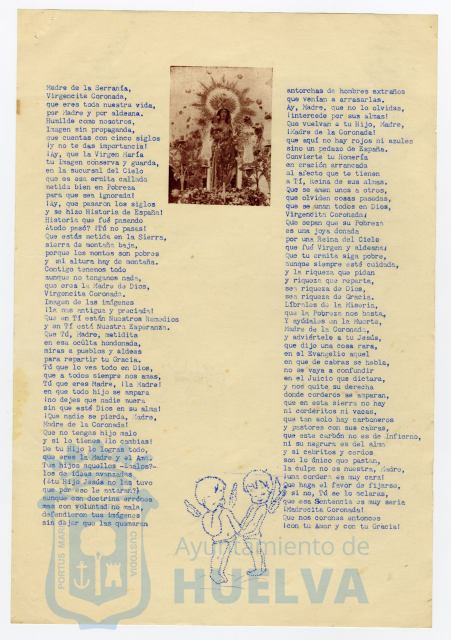 Madre de la Serranía,
Virgencita Coronada,
que eres toda nuestra vida,
por Madre y por aldeana.
Humilde como nosotros,
Imagen sin propaganda,
que cuentas con cinco siglos
¡y no te das importancia!
¡Ay, que la Virgen María
tu Imagen conserva y guarda,
en la sucursal del Cielo
que es esa ermita callada
metida bien en Pobreza
para que sea ignorada!
¡Ay, que pasaron los siglos
y se hizo Historia de España!
Historia que fué pasando
¿todo pasó? ¡Tú no pasas!
Que estás metida en la Sierra,
sierra de montaña baja,
porque los montes son pobres
y ni altura hay de montaña.
Contigo tenemos todo
aunque no tengamos nada,
que eres la Madre de Dios,
Virgencita Coronada.
Imagen de las imágenes
¡la más antigua y preciada!
Que en Tí están Nuestros Remedios
y en Tí está Nuestra Esperanza.
Que Tú, Madre, metidita
en esa oculta hondonada,
miras a pueblos y aldeas
para repartir tu Gracia.
Tú que lo ves todo en Dios,
que a todos siempre nos amas,
Tú que eres Madre, ¡la Madre!
en que todo hijo se ampara
¡no dejes que nadie muera
sin que esté Dios en su alma!
¡Que nadie se pierda, Madre,
Madre de la Coronada!
Que no tengas hijo malo
y si lo tienes ¡lo cambias!
De tu Hijo lo logras todo,
que eres la Madre y el Ama.
Tus hijos aquellos -¿malos?-
los de ideas avanzadas
(¿tu Hijo Jesús no las tuvo
que por eso le mataran?)
aunque con doctrina errónea
mas con voluntad no mala,
defendieron tus imágenes
sin dejar que las quemaran
antorchas de hombres extraños
que venían a arrasarlas.
Ay, Madre, que no lo olvides,
¡intercede por sus almas!
Que vuelvan a tu Hijo, Madre,
¡Madre de la Coronada!
que aquí no hay rojos ni azules
sino un pedazo de España.
Convierte tu Romería
en oración arrancada
al afecto que te tienen
a Tí, Reina de sus almas.
Que se amen unos a otros,
que olviden cosas pasadas,
que se unan todos en Dios,
Virgencita Coronada!
Que sepan que su Pobreza
es una joya donada
por una Reina del Cielo
que fué Virgen y aldeana;
Que tu ermita siga pobre,
aunque siempre esté cuidada,
y la riqueza que pidan
y riqueza que reparta,
sea riqueza de Dios,
sea riqueza de Gracia.
Líbralos de la Miseria,
que la Pobreza nos basta,
Y ayúdales en la Muerte,
Madre de la Coronada,
y adviértele a tu Jesús,
que dijo una cosa rara,
en el Evangelio aquel
en que de cabras se habla,
no se vaya a confundir
en el Juicio que dictara,
y nos quite su derecha
donde corderos se amparan,
que en esta sierra no hay
ni corderitos ni vacas,
que tan solo hay carboneros
y pastores con sus cabras,
que este carbón no es de Infierno,
ni su negrura es del alma
y si cabritos y cerdos
son lo único que pastan,
la culpa no es nuestra, Madre,
¡una cordera es muy cara!
Que haga el favor de fijarse,
y si no, Tú se lo aclaras,
que esa Sentencia es muy seria
¡Madrecita Coronada!
Que nos coronen entonces
¡con tu Amor y con tu Gracia!
PORTUS MARIS
CUSTODIA
Ayuntamiento de
HUELVA